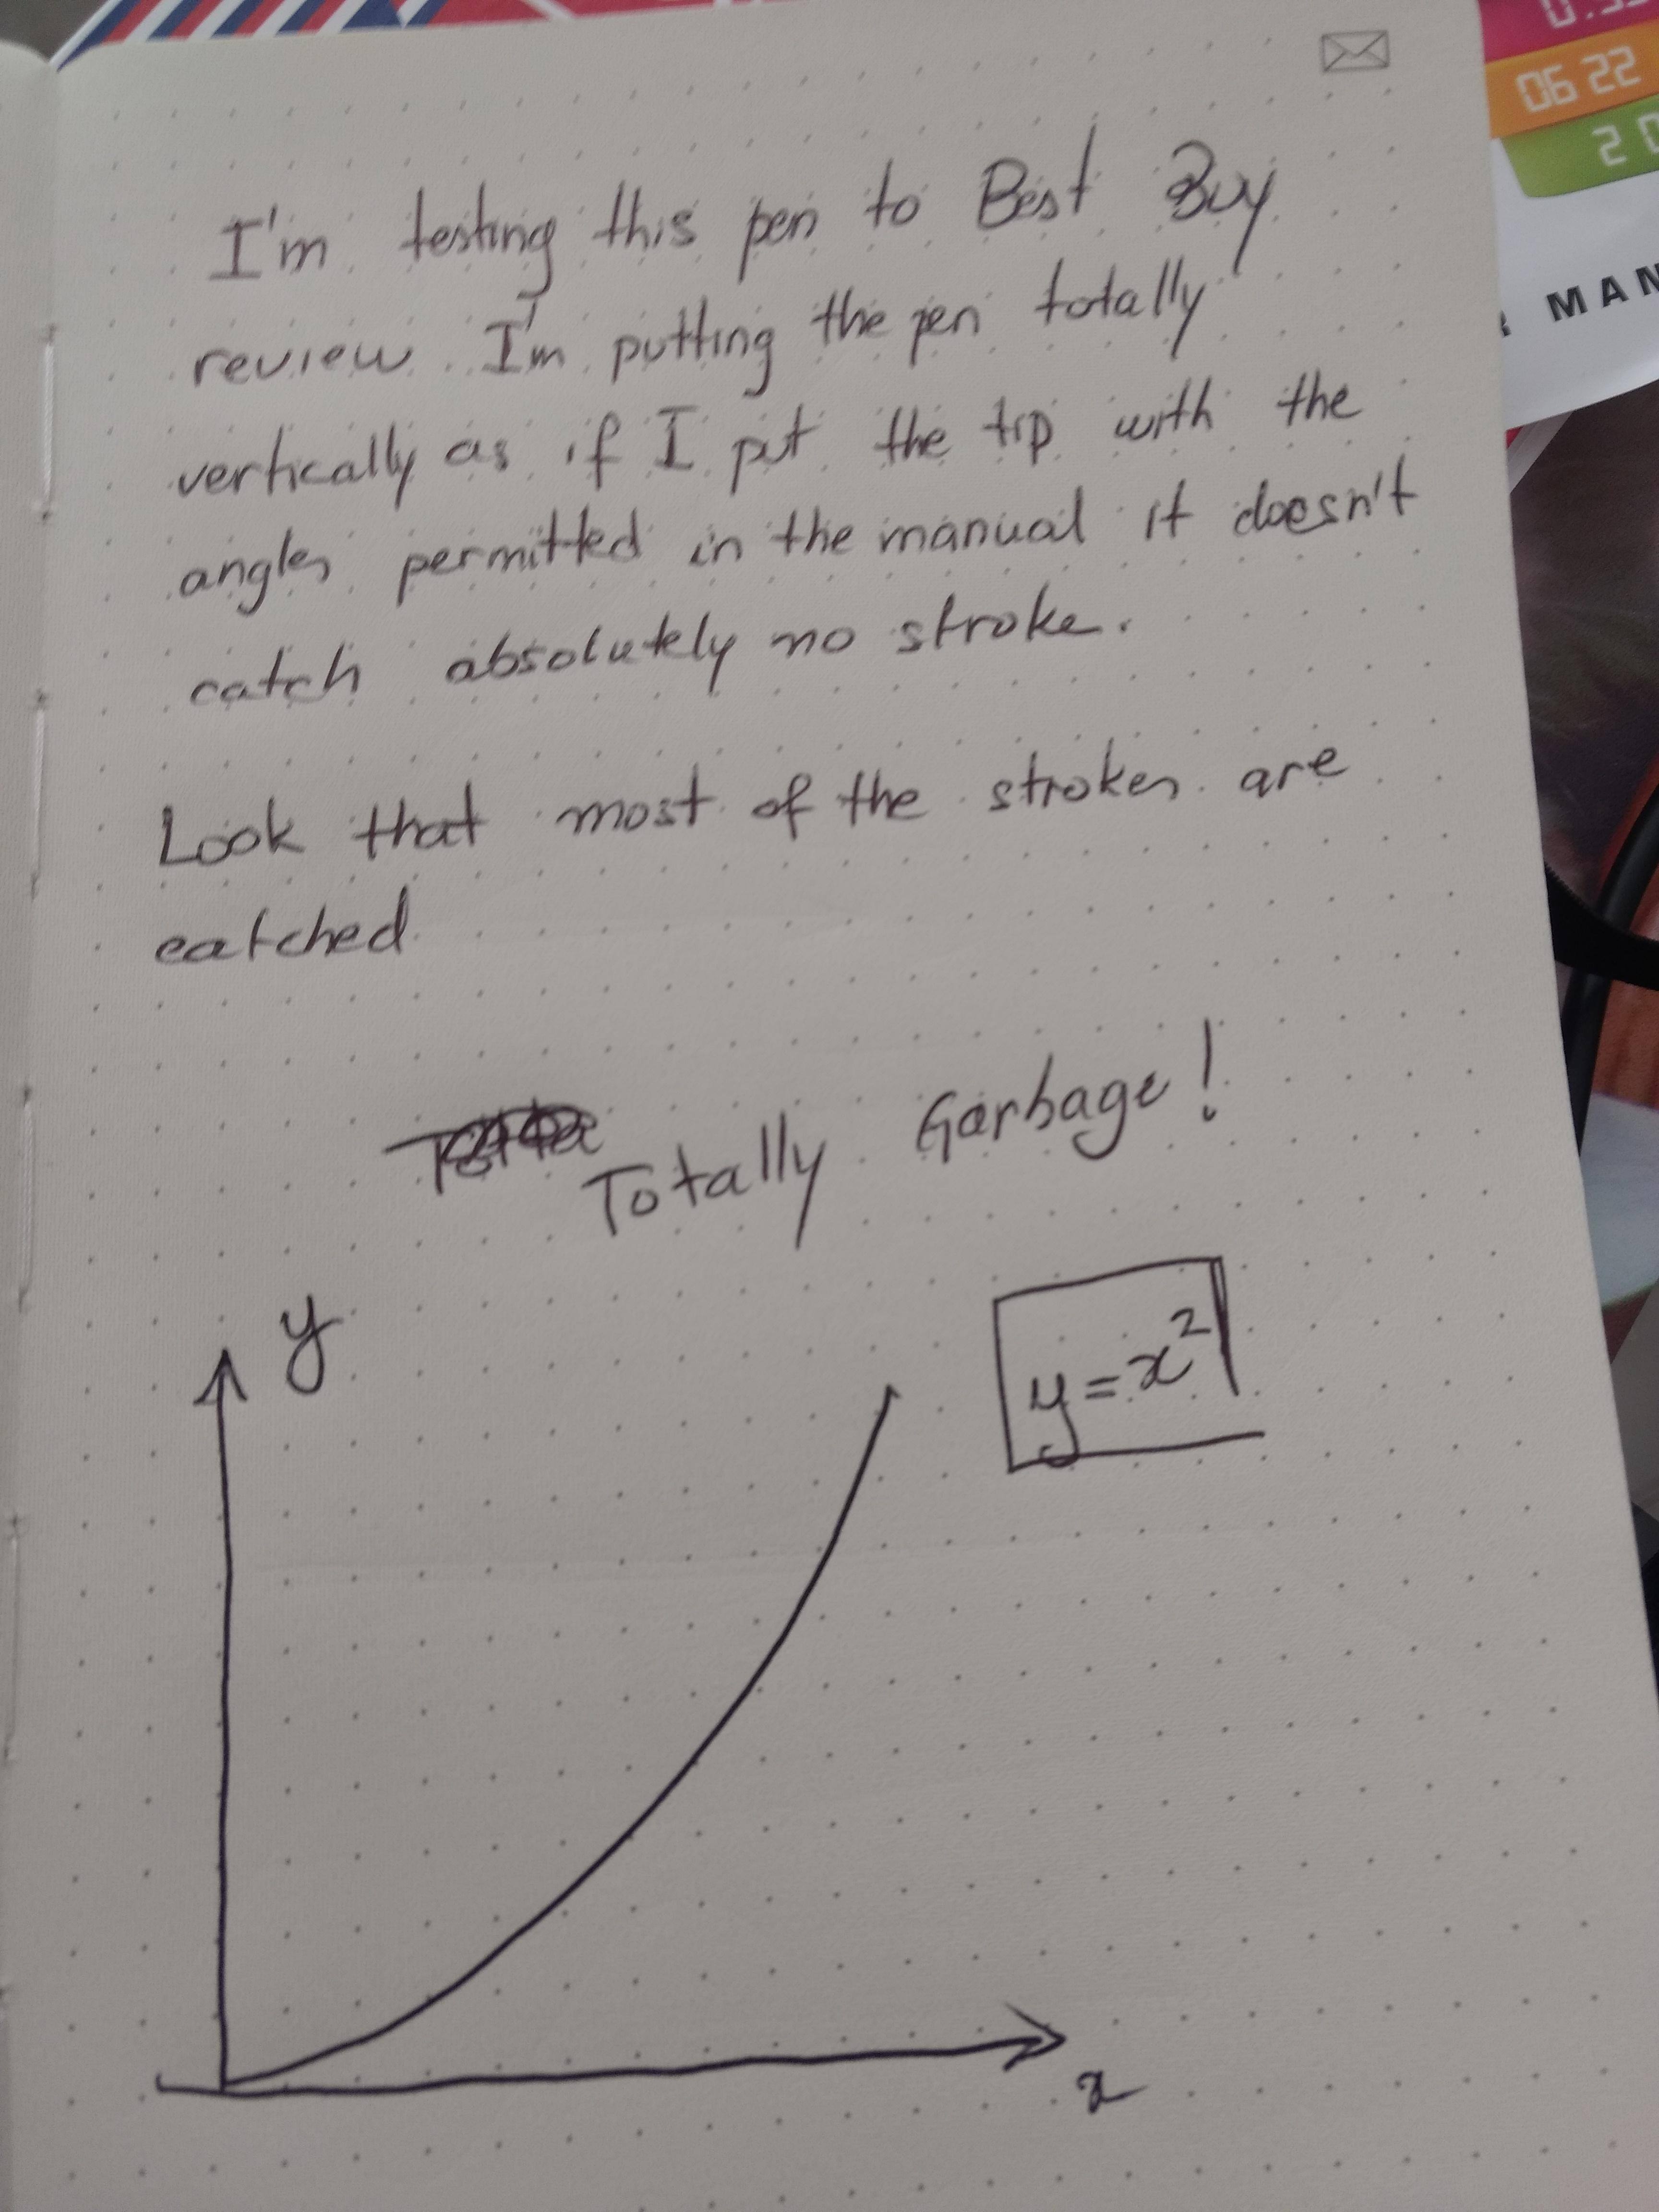 I'm testing this pen to Best Buy
review. I'm putting the pen totally
vertically as if I put the tip with the
angles permitted in the manual it doesn't
catch absolutely no stroke.
Look that most of the strokes are
catched
Totally Garbage!
y
y=x²
x
06 22
MAN